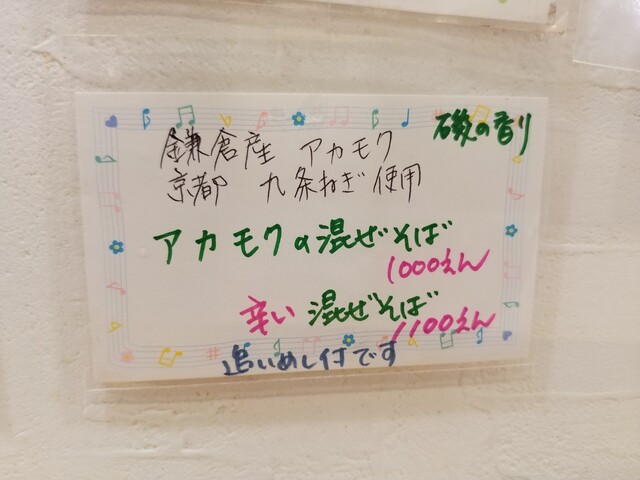 磯の香り
鎌倉産 アカモク
京都 九条ねぎ使用
アカモクの混ぜそば
1000えん
辛い 混ぜそば
1100えん
追いめし付です